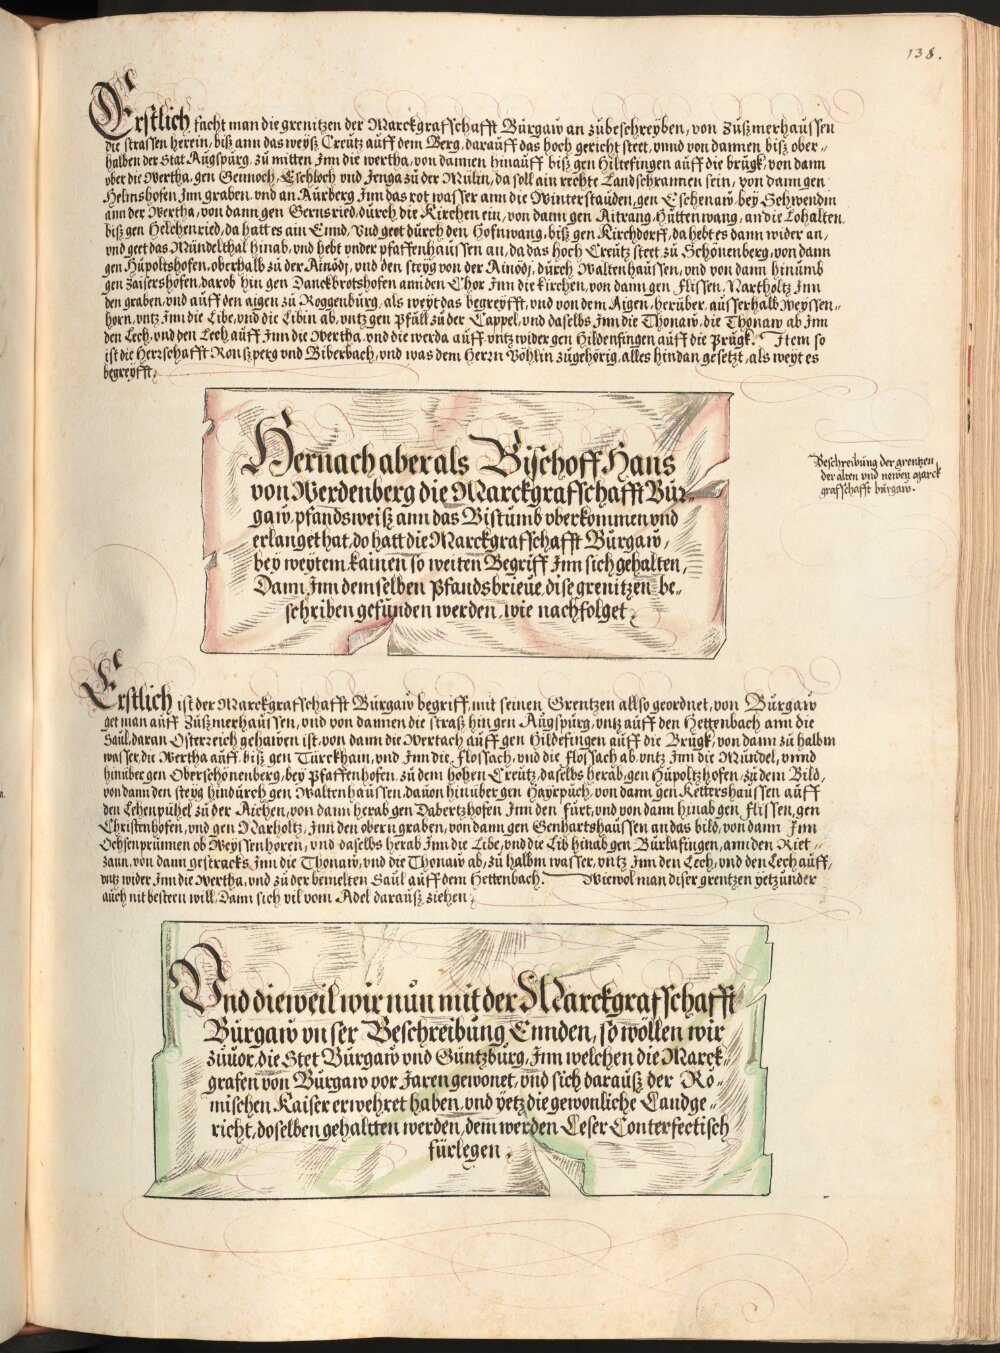 138.
Erstlich facht man die grenitzen der Marckgrafschafft Burgaw an zubeschreyben, von Zußmerhaussen
die strassen herein, biß ann das weyß Creutz auff dem Berg, darauff das hoch gericht steet, vnnd von dannen biß ober-
halben der Stat Augspurg, zu mitten Inn die wertha, von dannen hinauff biß gen Hiltefingen auff die brugk, von dann
vber die Wertha, gen Gennoch, Eschloch vnd Jenga zu der Mülin, da soll ain rechte Landschrannen sein, von dann gen
Helmshofen Inn graben, vnd an Aürberg Inn das rot wasser ann die Winterstauden, gen Eschenaw bey Schwendin
ann der Wertha, von dann gen Gernsried, durch die Kirchen ein, von dann gen Aitrang, Hüttenwang, an die Lohalten,
biß gen Helchenried, da hatt es ain Ennd, Vnd geet durch den Hofnwang, biß gen Kirchdorff, da hebt es dann wider an,
vnd geet das Mündelthal hinab, vnd hebt vnder pfaffenhaussen an, da das hoch Creutz steet, zu Schönenberg, von dann
gen Hüpoltshofen, oberhalb zu der Ainödj, vnd den stryg von der Ainödj, durch Waltenhaussen, vnd von dann hinumb
gen Zaisershofen, darob hin gen Danckbrotshofen ann den Chor Inn die kirchen, von dann gen Flissen, Nartholtz Inn
den graben, vnd auff den aigen zu Roggenburg, als weyt das begreyfft, vnd von dem Aigen, herüber, ausserhalb Weyssen-
horn, vntz Inn die Libe, vnd die Libin ab, vntz gen Pfüll zu der Cappel, vnd daselbs Inn die Thonaw, die Thonaw ab Inn
den Lech, vnd den Lech auff Inn die Wertha, vnd die werda auff, vntz wider gen Hildenfingen auff die Prugk. Item so
ist die Herrschafft Ronßperg vnd Biberbach, vnd was dem Herrn Vöhlin zugehörig, alles hindan gesetzt, als weyt es
begreyfft.
Hernach aber als Bischoff Hans
von Werdenberg die Marckgrafschafft Bur-
gaw, pfandsweiß ann das Bistumb vberkommen vnd
erlanget hat, do hatt die Marckgrafschafft Burgaw,
bey weytem kainen so weiten Begriff Inn sich gehalten,
Dann Inn demselben Pfandsbrieue, dise grenitzen be-
schriben gefunden werden, wie nachfolget.
Beschreibung der grentzen
der alten vnd newen Marck
grafschafft burgaw.
Erstlich ist der Marckgrafschafft Burgaw begriff, mit seinen Grentzen allso geordnet, von Burgaw
get man auff Zußmerhaussen, vnd von dannen die straß hin gen Augspurg, vntz auff den Hettenbach ann die
Saul, daran Osterreich gehawen ist, von dann die Wertach auff gen Hildefingen auff die Brugk, von dann zu halbm
wasser, die Wertha auff, biß gen Türckhain, vnd Inn die, Flossach, vnd die flossach ab vntz Inn die Mündel, vnnd
hinüber gen Oberschönenberg, bey Pfaffenhofen, zu dem hohen Creutz, daselbs herab, gen Hüpoltzhofen, zu dem Bild,
von dann den steyg hindurch gen Waltenhaussen, dauon hinüber gen Hayrpuch, von dann gen Kettershaussen auff
den Lehenpühel zu der Aichen, von dann herab gen Dabertzhofen Inn den Furt, vnd von dann hinab gen Flissen, gen
Christenhofen, vnd gen Narholtz, Inn den obern graben, von dann gen Genhartshaussen an das bild, von dann Inn
Ochsenprunnen ob Weyssenhoren, vnd daselbs herab Inn die Libe, vnd die Lib hinab gen Burlafingen, ann den Riet-
zaun, von dann gestracks, Inn die Thonaw, vnd die Thonaw ab, zu halbm wasser, vntz Inn den Lech, vnd den Lech auff,
vntz wider Inn die Wertha, vnd zu der bemelten Saul auff dem Hettenbach. Wiewol man diser grentzen yetzunder
auch nit besteen will, Dann sich vil vom Adel darauß ziehen.
Vnd dieweil wir nun mit der Marckgrafschafft
Burgaw vnser Beschreibung Ennden, so wöllen wir
zuuor, die Stet Burgaw vnd Guntzburg, Inn welchen die Marck-
grafen von Burgaw vor Jaren gewonet, vnd sich darauß der Rö-
mischen Kaiser erwehret haben, vnd yetz die gewonliche Landge-
richt, doselben gehaltten werden, dem werden Leser Conterfectisch
fürlegen.